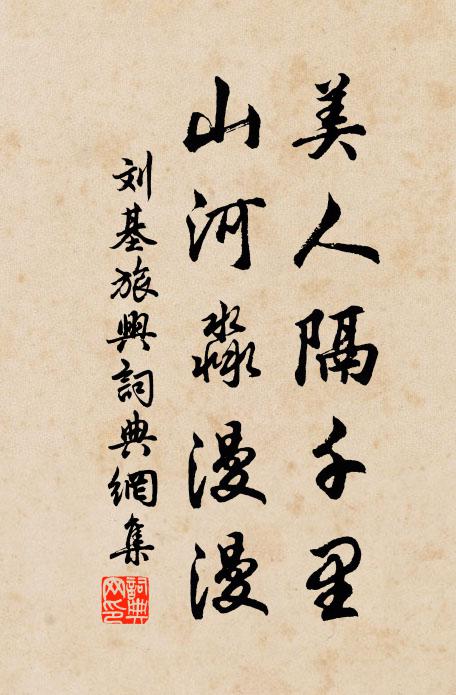 美人隔千里
山河淼漫漫
刘基旅興詞典網集
詞典网印